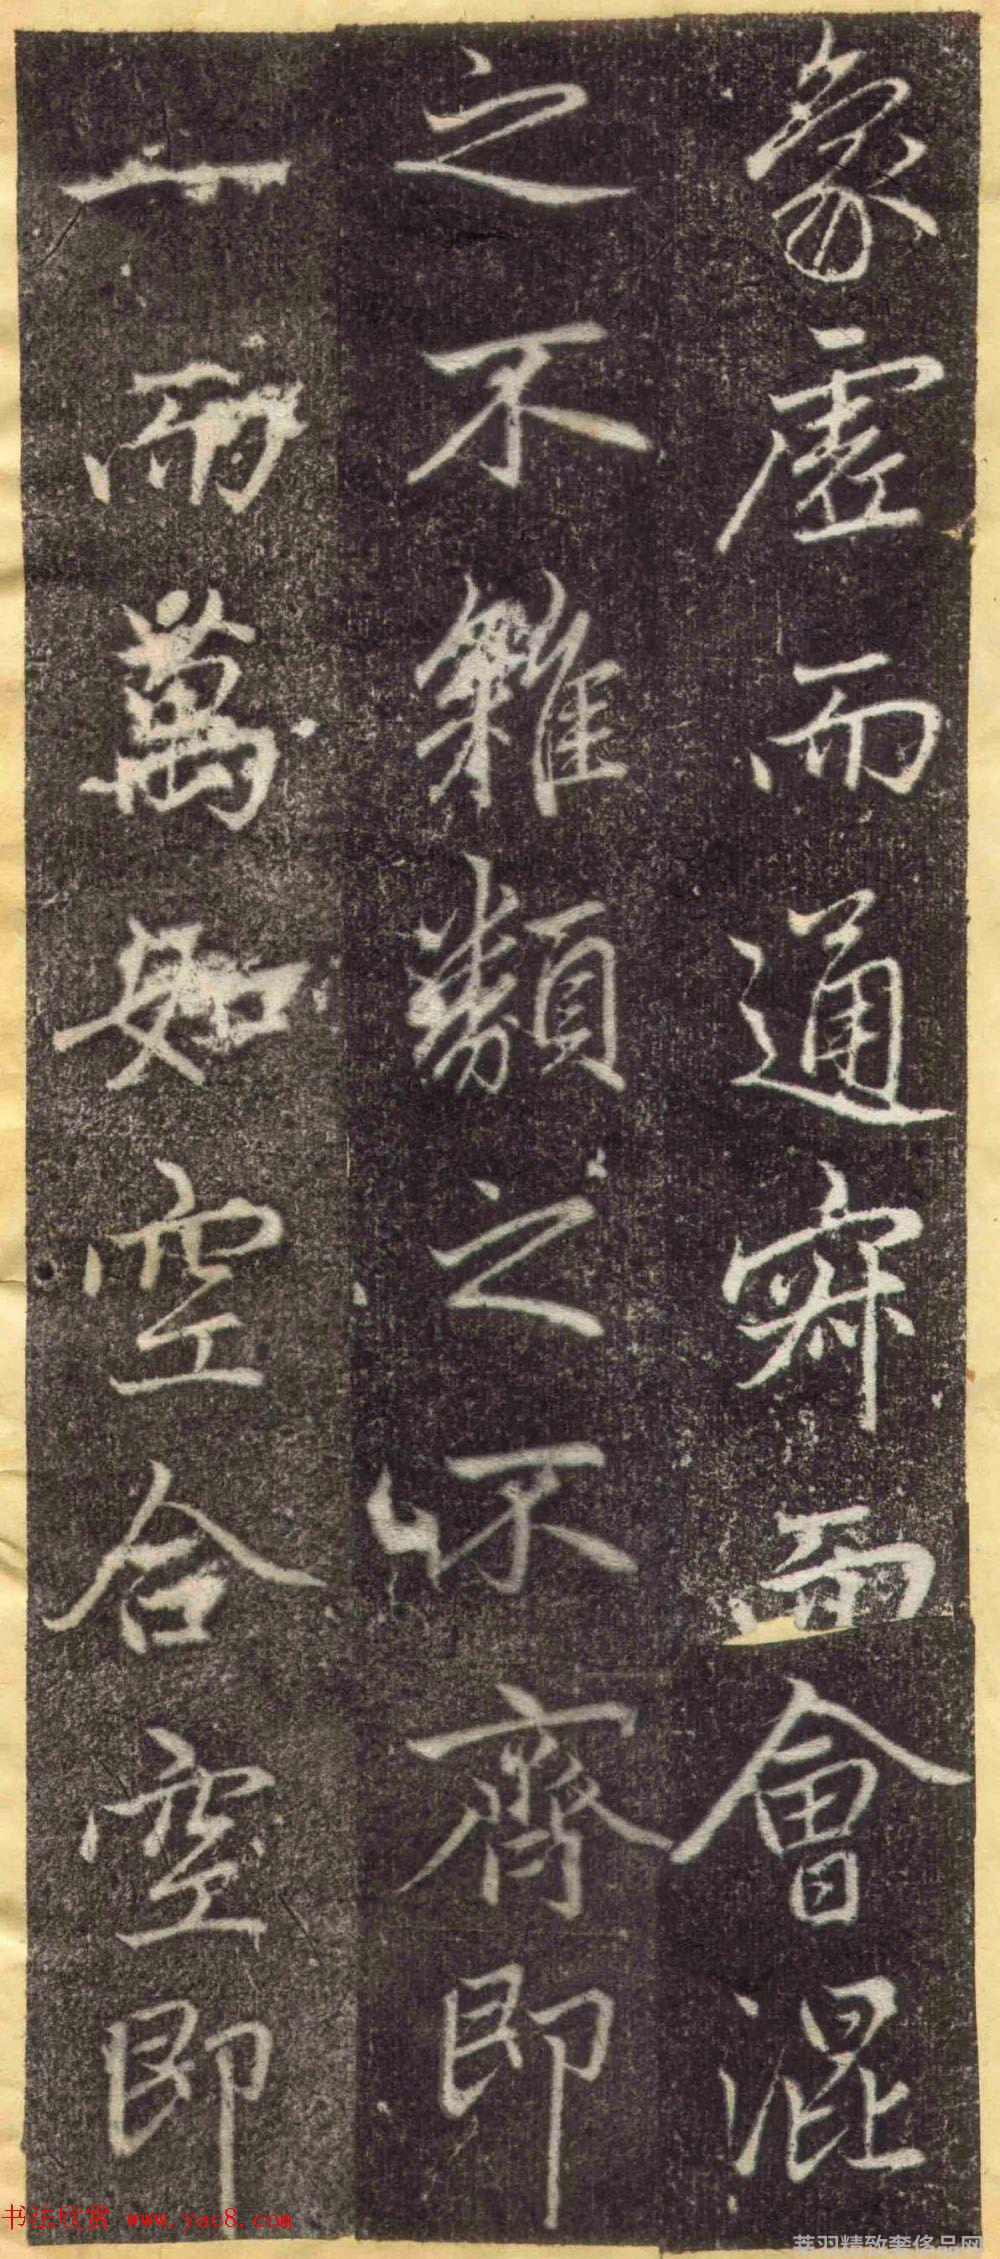 象虛而通寂而會混
之不雜類之不齊即
一而萬如空合空即
书法欣赏 www.yac8.com
莽羽精致奢侈品网